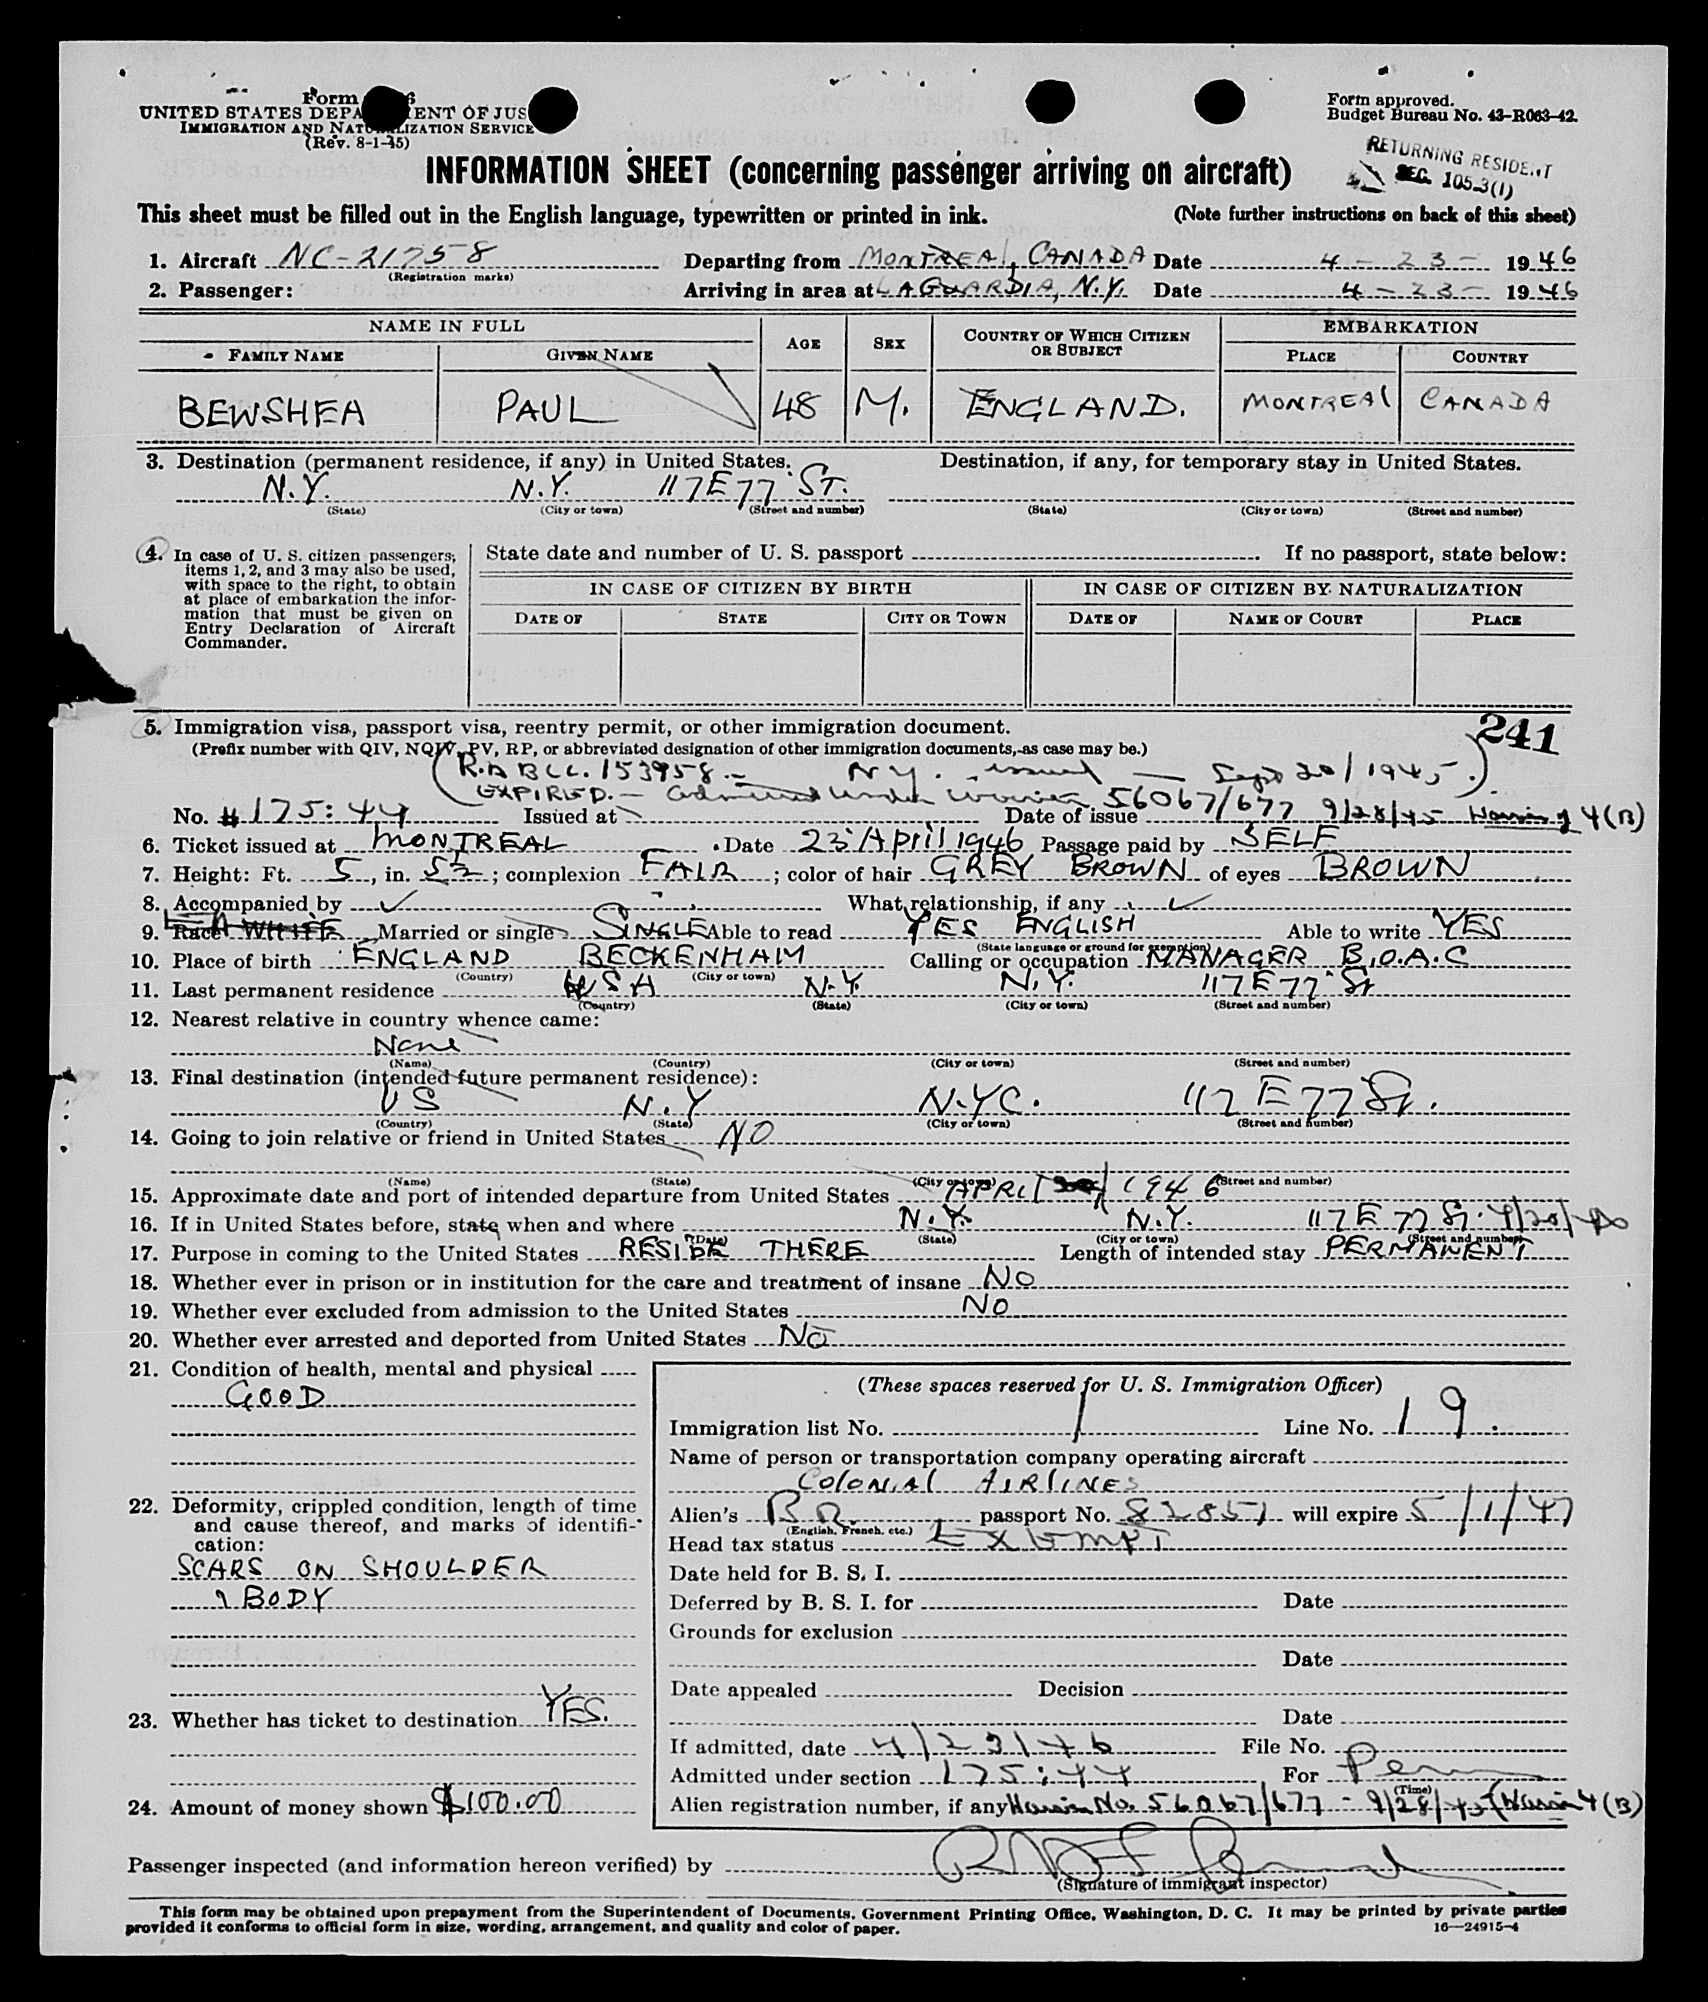 Form
UNITED STATES DEPA ENT OF JUS
IMMIGRATION AND NATURALIZATION SERVICE
(Rev. 8-1-45)
Form approved.
Budget Bureau No. 43-R063-42.
RETURNING RESIDENT
SEC. 105.3(1)
INFORMATION SHEET (concerning passenger arriving on aircraft)
This sheet must be filled out in the English language, typewritten or printed in ink. (Note further instructions on back of this sheet)
1. Aircraft NC-21758 Departing from MONTREAL, CANADA Date 4-23-1946
(Registration marks)
2. Passenger: Arriving in area at LAGUARDIA, N.Y. Date 4-23-1946
NAME IN FULL AGE SEX COUNTRY OF WHICH CITIZEN OR SUBJECT EMBARKATION
FAMILY NAME GIVEN NAME PLACE COUNTRY
BEWSHEA PAUL 48 M. ENGLAND. MONTREAL CANADA
3. Destination (permanent residence, if any) in United States. Destination, if any, for temporary stay in United States.
N.Y. N.Y. 117 E 77 ST.
(State) (City or town) (Street and number) (State) (City or town) (Street and number)
4. In case of U. S. citizen passengers, items 1, 2, and 3 may also be used, with space to the right, to obtain at place of embarkation the information that must be given on Entry Declaration of Aircraft Commander.
State date and number of U. S. passport If no passport, state below:
IN CASE OF CITIZEN BY BIRTH IN CASE OF CITIZEN BY NATURALIZATION
DATE OF STATE CITY OR TOWN DATE OF NAME OF COURT PLACE
5. Immigration visa, passport visa, reentry permit, or other immigration document. 241
(Prefix number with QIV, NQIV, PV, RP, or abbreviated designation of other immigration documents, as case may be.)
153958 N.Y. issued Sept 20/1945.
EXPIRED. - admitted under waiver 56067/677 9/28/45 4(B)
No. #175:44 Issued at Date of issue
6. Ticket issued at MONTREAL Date 23 April 1946 Passage paid by SELF
7. Height: Ft. 5, in. 5½; complexion FAIR; color of hair GREY BROWN of eyes BROWN
8. Accompanied by ✓ What relationship, if any ✓
9. Race WHITE Married or single SINGLE Able to read YES ENGLISH Able to write YES
(State language or ground for exemption)
10. Place of birth ENGLAND BECKENHAM Calling or occupation MANAGER B.O.A.C
(Country) (City or town)
11. Last permanent residence USA N.Y. N.Y. 117 E 77 St
(Country) (State) (City or town) (Street and number)
12. Nearest relative in country whence came:
None
(Name) (Country) (City or town) (Street and number)
13. Final destination (intended future permanent residence):
US N.Y N.Y.C. 117 E 77 St.
(Country) (State) (City or town) (Street and number)
14. Going to join relative or friend in United States NO
(Name) (State) (City or town) (Street and number)
15. Approximate date and port of intended departure from United States APRIL 1946
16. If in United States before, state when and where N.Y. N.Y. 117 E 77 St. 4/20/46
(Date) (State) (City or town) (Street and number)
17. Purpose in coming to the United States RESIDE THERE Length of intended stay PERMANENT
18. Whether ever in prison or in institution for the care and treatment of insane NO
19. Whether ever excluded from admission to the United States NO
20. Whether ever arrested and deported from United States NO
21. Condition of health, mental and physical
GOOD
22. Deformity, crippled condition, length of time and cause thereof, and marks of identification:
SCARS ON SHOULDER
& BODY
23. Whether has ticket to destination YES.
24. Amount of money shown $100.00
(These spaces reserved for U. S. Immigration Officer)
Immigration list No. 1 Line No. 19.
Name of person or transportation company operating aircraft
COLONIAL AIRLINES
Alien's BR. passport No. 82851 will expire 5/1/47
(English, French, etc.)
Head tax status EXEMPT
Date held for B. S. I.
Deferred by B. S. I. for Date
Grounds for exclusion
Date
Date appealed Decision
Date
If admitted, date 4/23/46 File No.
Admitted under section 175:44 For Perm
(Time)
Alien registration number, if any No. 56067/677 - 9/28/45 4(B)
Passenger inspected (and information hereon verified) by
(Signature of immigrant inspector)
This form may be obtained upon prepayment from the Superintendent of Documents, Government Printing Office, Washington, D. C. It may be printed by private parties
provided it conforms to official form in size, wording, arrangement, and quality and color of paper. 16-24915-4